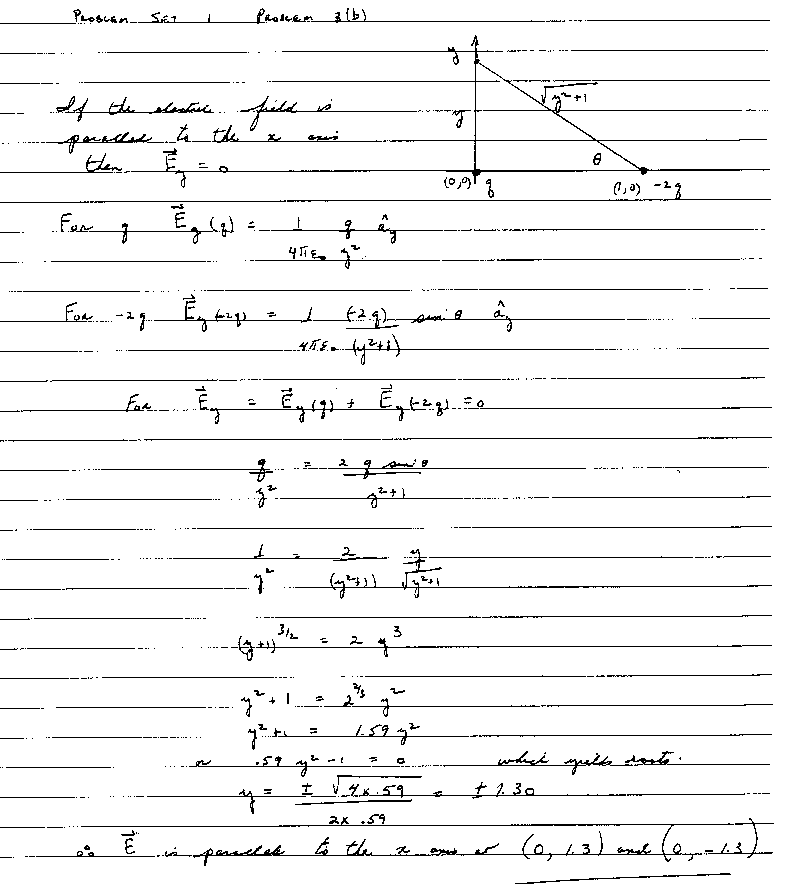 PROBLEM SET 1 PROBLEM 3(b)
y
√y²+1
y
θ
(0,0) q (1,0) -2q
If the electric field is
parallel to the x axis
then E⃗y = 0
For q E⃗y(q) = 1/4πε₀ q/y² ây
For -2q E⃗y(-2q) = 1/4πε₀ (-2q)/(y²+1) sin θ ây
For E⃗y = E⃗y(q) + E⃗y(-2q) = 0
q/y² = 2 q sin θ/y²+1
1/y² = 2/(y²+1) y/√y²+1
(y+1)^3/2 = 2 y³
y² + 1 = 2^2/3 y²
y² + 1 = 1.59 y²
or .59 y² - 1 = 0 which yields roots.
y = ± √4x.59/2x .59 = ± 1.30
∴ E⃗ is parallel to the x axis at (0, 1.3) and (0, -1.3)